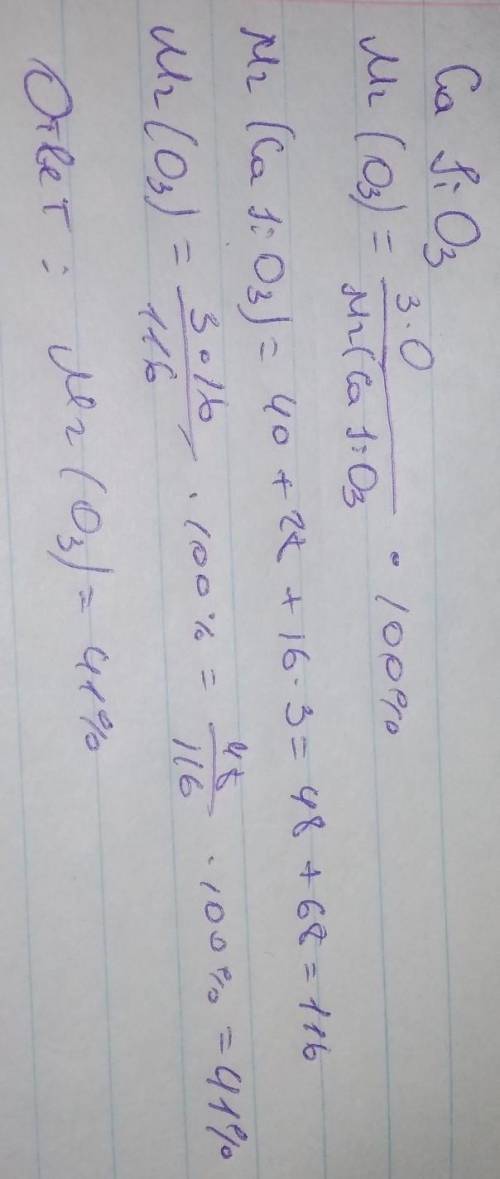 Ca SiO3
Mr (O3) = 3·O / Mr(CaSiO3 · 100%
Mr (CaSiO3) = 40 + 28 + 16·3 = 48 + 68 = 116
Mr (O3) = 3·16 / 116 · 100% = 48 / 116 · 100% = 41%
Ответ: Mr (O3) = 41%